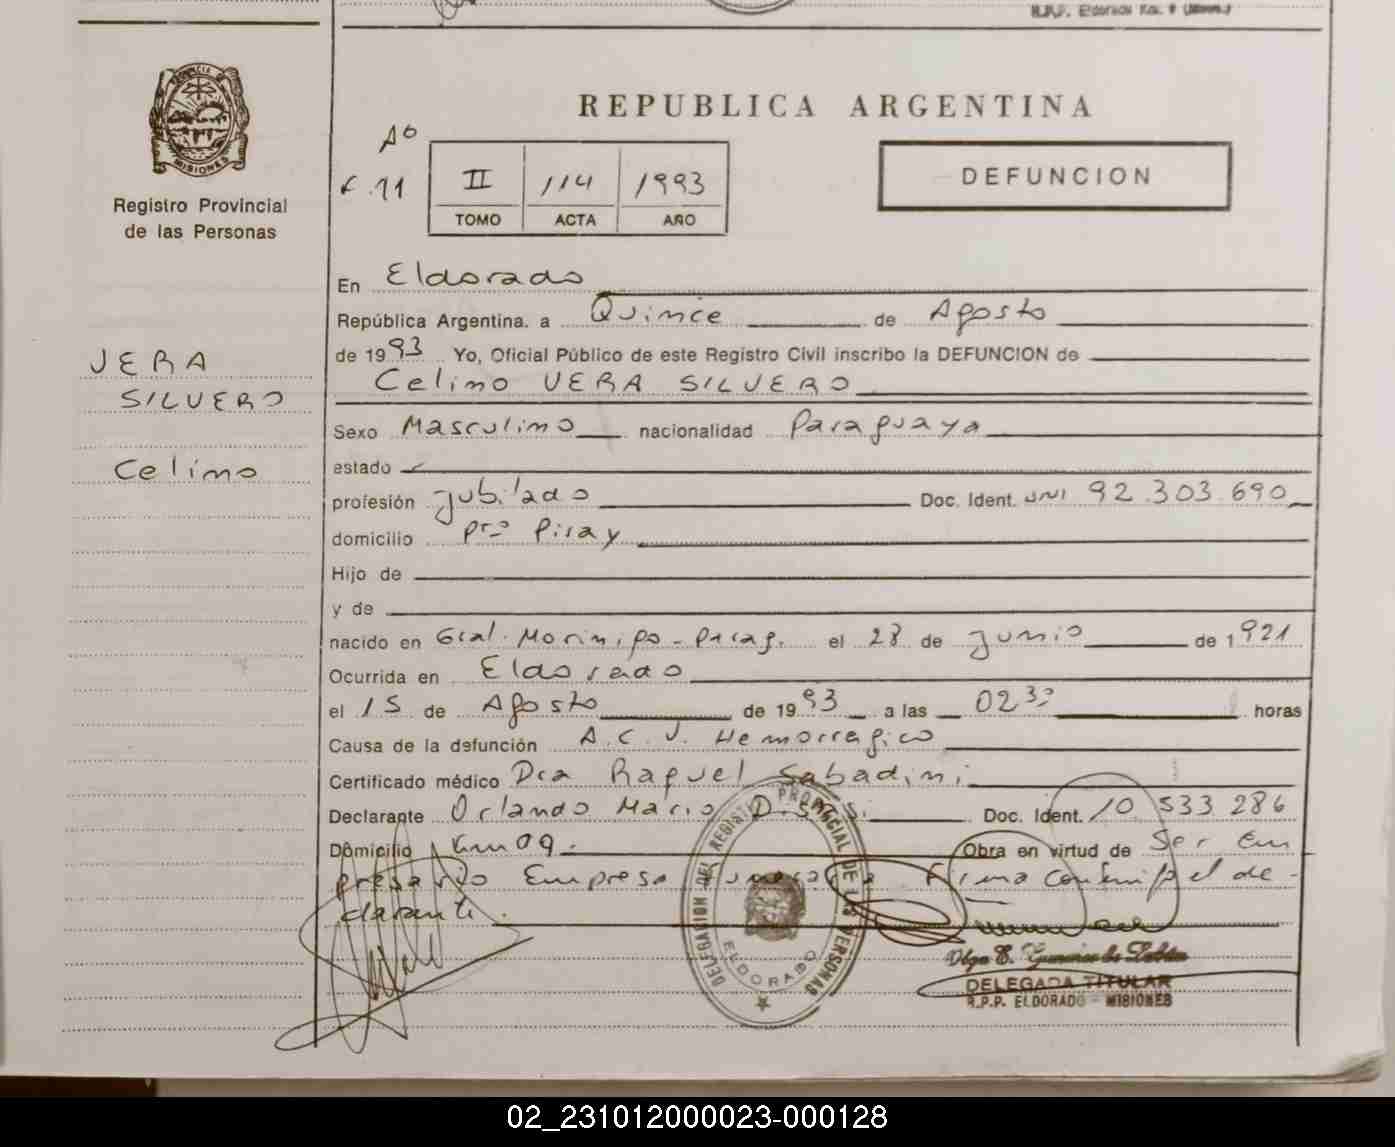 R.P.P. Eldorado
REPUBLICA ARGENTINA
PROVINCIA DE
MISIONES
Registro Provincial
de las Personas
Aº
F. 11
II 114 1993
TOMO ACTA AÑO
DEFUNCION
VERA
SILVERO
Celino
En Eldorado
República Argentina. a Quince de Agosto
de 1993 Yo, Oficial Público de este Registro Civil inscribo la DEFUNCION de
Celino VERA SILVERO
Sexo Masculino nacionalidad Paraguaya
estado
profesión Jubilado Doc. Ident. DNI 92.303.690
domicilio Pto Piray
Hijo de
y de
nacido en Gral. Morinigo - Parag. el 28 de Junio de 1921
Ocurrida en Eldorado
el 15 de Agosto de 1993 a las 02 30 horas
Causa de la defunción A.C.V. Hemorragico
Certificado médico Dra Raquel Sabadini
Declarante Orlando Mario Doc. Ident. 10.533.286
Domicilio Km 09. Obra en virtud de Ser Em
presario Empresa Funeraria Firma conmigo el de-
clarante.
DELEGACION DEL REGISTRO PROVINCIAL DE LAS PERSONAS
ELDORADO
Olga E.
DELEGADA TITULAR
R.P.P. ELDORADO - MISIONES
02_231012000023-000128